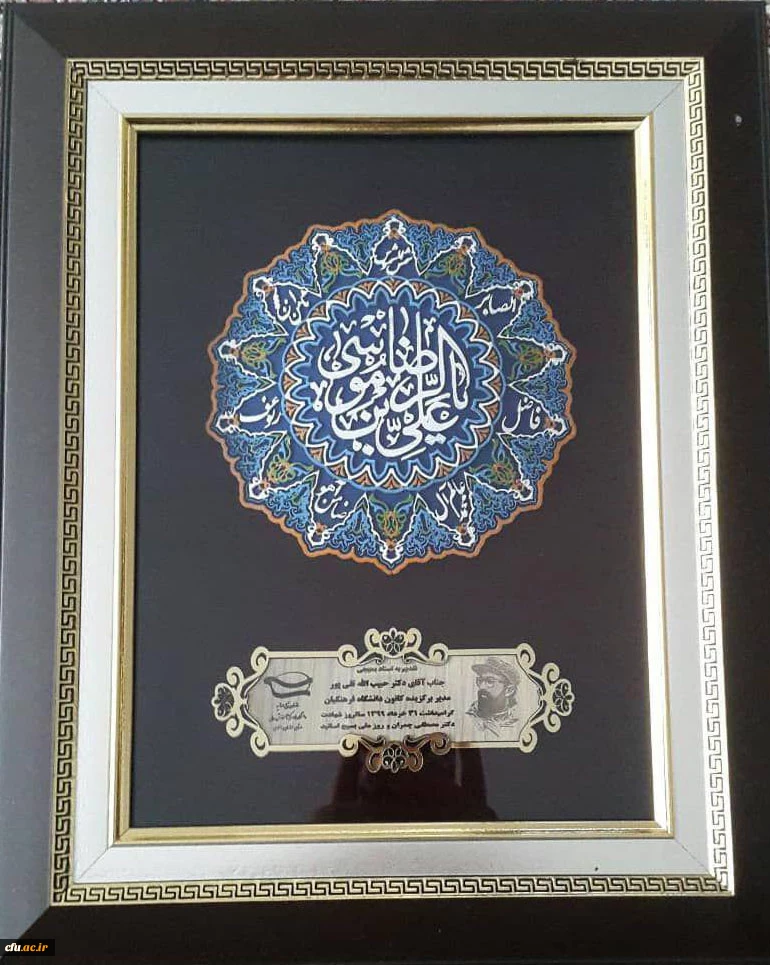 یا علی بن موسی الرضا
الصابر
فاضل
رئوف
تقدیم به استاد بسیجی
جناب آقای دکتر حبیب الله قلی پور
مدیر برگزیده کانون دانشگاه فرهنگیان
گرامیداشت ۳۱ خرداد ۱۳۹۹ سالروز شهادت
دکتر مصطفی چمران و روز ملی بسیج اساتید
cfu.ac.ir